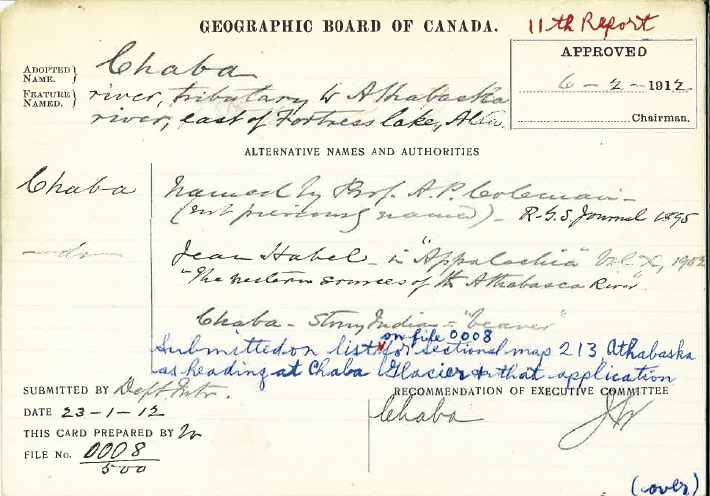 GEOGRAPHIC BOARD OF CANADA.
11th Report
APPROVED
6-2-1912
Chairman.
ADOPTED NAME. } Chaba
FEATURE NAMED. } river, tributary to Athabaska
river, east of Fortress lake, Alta.
ALTERNATIVE NAMES AND AUTHORITIES
Chaba
Named by Prof. A.P. Coleman -
(not previously named) - R.G.S. Journal 1895
-do-
Jean Habel - in "Appalachia" Vol. X, 1902
"The western sources of the Athabasca River".
Chaba - Stony Indian = "beaver"
on file 0008
Submitted on list for Sectional map 213, Athabaska
as heading at Chaba Glacier & that application
SUBMITTED BY Dept. Intr.
DATE 23-1-12
THIS CARD PREPARED BY
FILE No. 0008
500
RECOMMENDATION OF EXECUTIVE COMMITTEE
Chaba
(over)